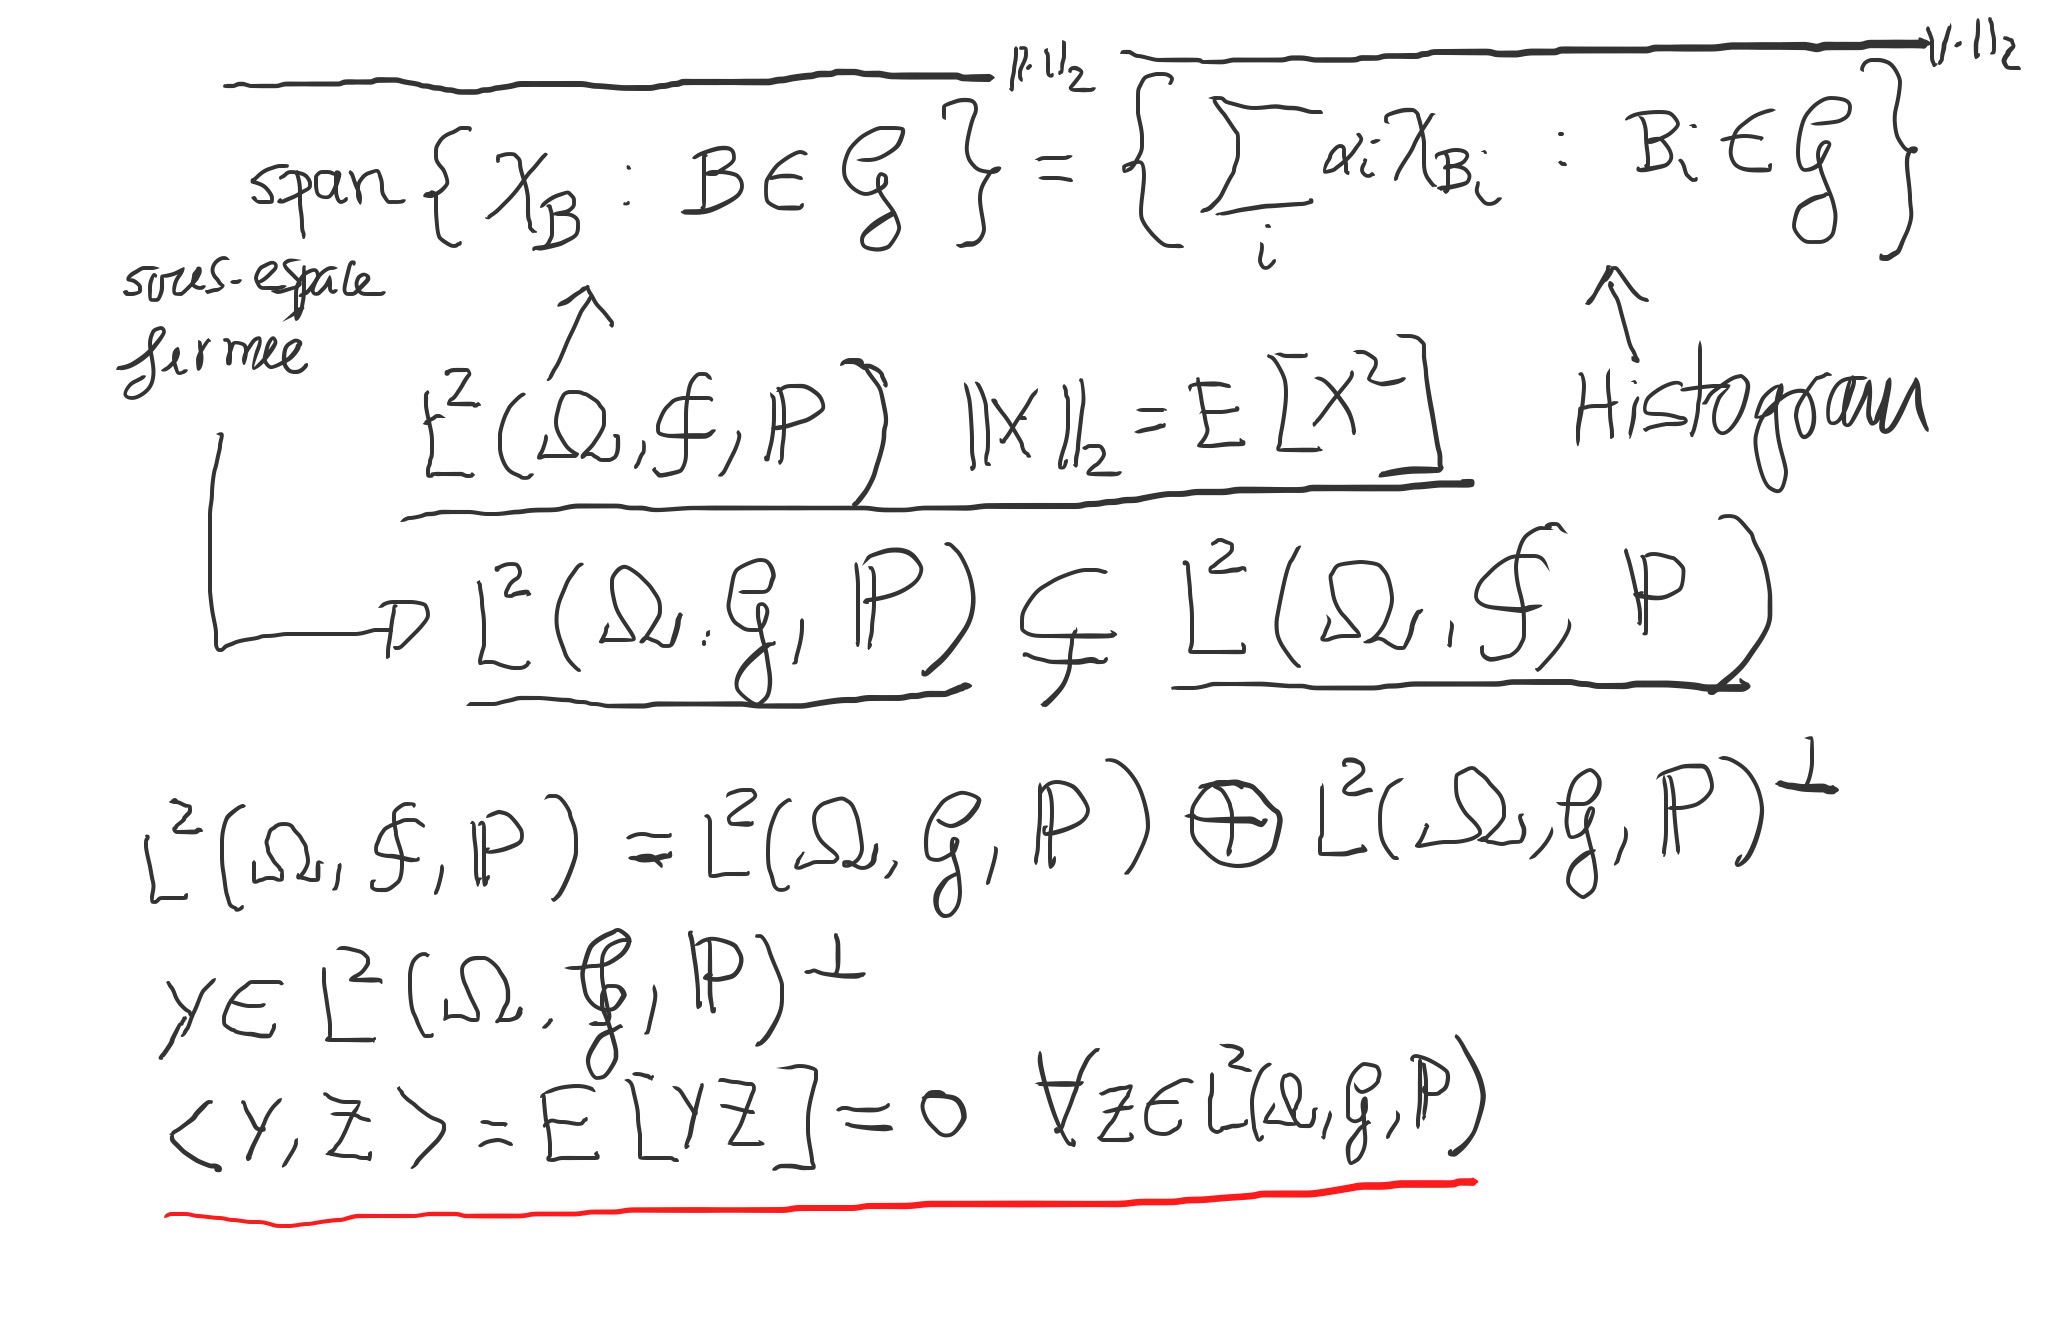 $\overline{\text{span}\{\chi_B : B \in \mathcal{G}\}}^{\|\cdot\|_2} = \overline{\{\sum_i \alpha_i \chi_{B_i} : B_i \in \mathcal{G}\}}^{\|\cdot\|_2}$
sous-espace
fermee
↑ ↑
$L^2(\Omega, \mathcal{F}, \mathbb{P})$ $\|X\|_2 = \mathbb{E}[X^2]$ Histogram
→ $L^2(\Omega, \mathcal{G}, \mathbb{P}) \subsetneq L^2(\Omega, \mathcal{F}, \mathbb{P})$
$L^2(\Omega, \mathcal{F}, \mathbb{P}) = L^2(\Omega, \mathcal{G}, \mathbb{P}) \oplus L^2(\Omega, \mathcal{G}, \mathbb{P})^\perp$
$Y \in L^2(\Omega, \mathcal{G}, \mathbb{P})^\perp$
$\langle Y, Z \rangle = \mathbb{E}[YZ] = 0 \quad \forall Z \in L^2(\Omega, \mathcal{G}, \mathbb{P})$